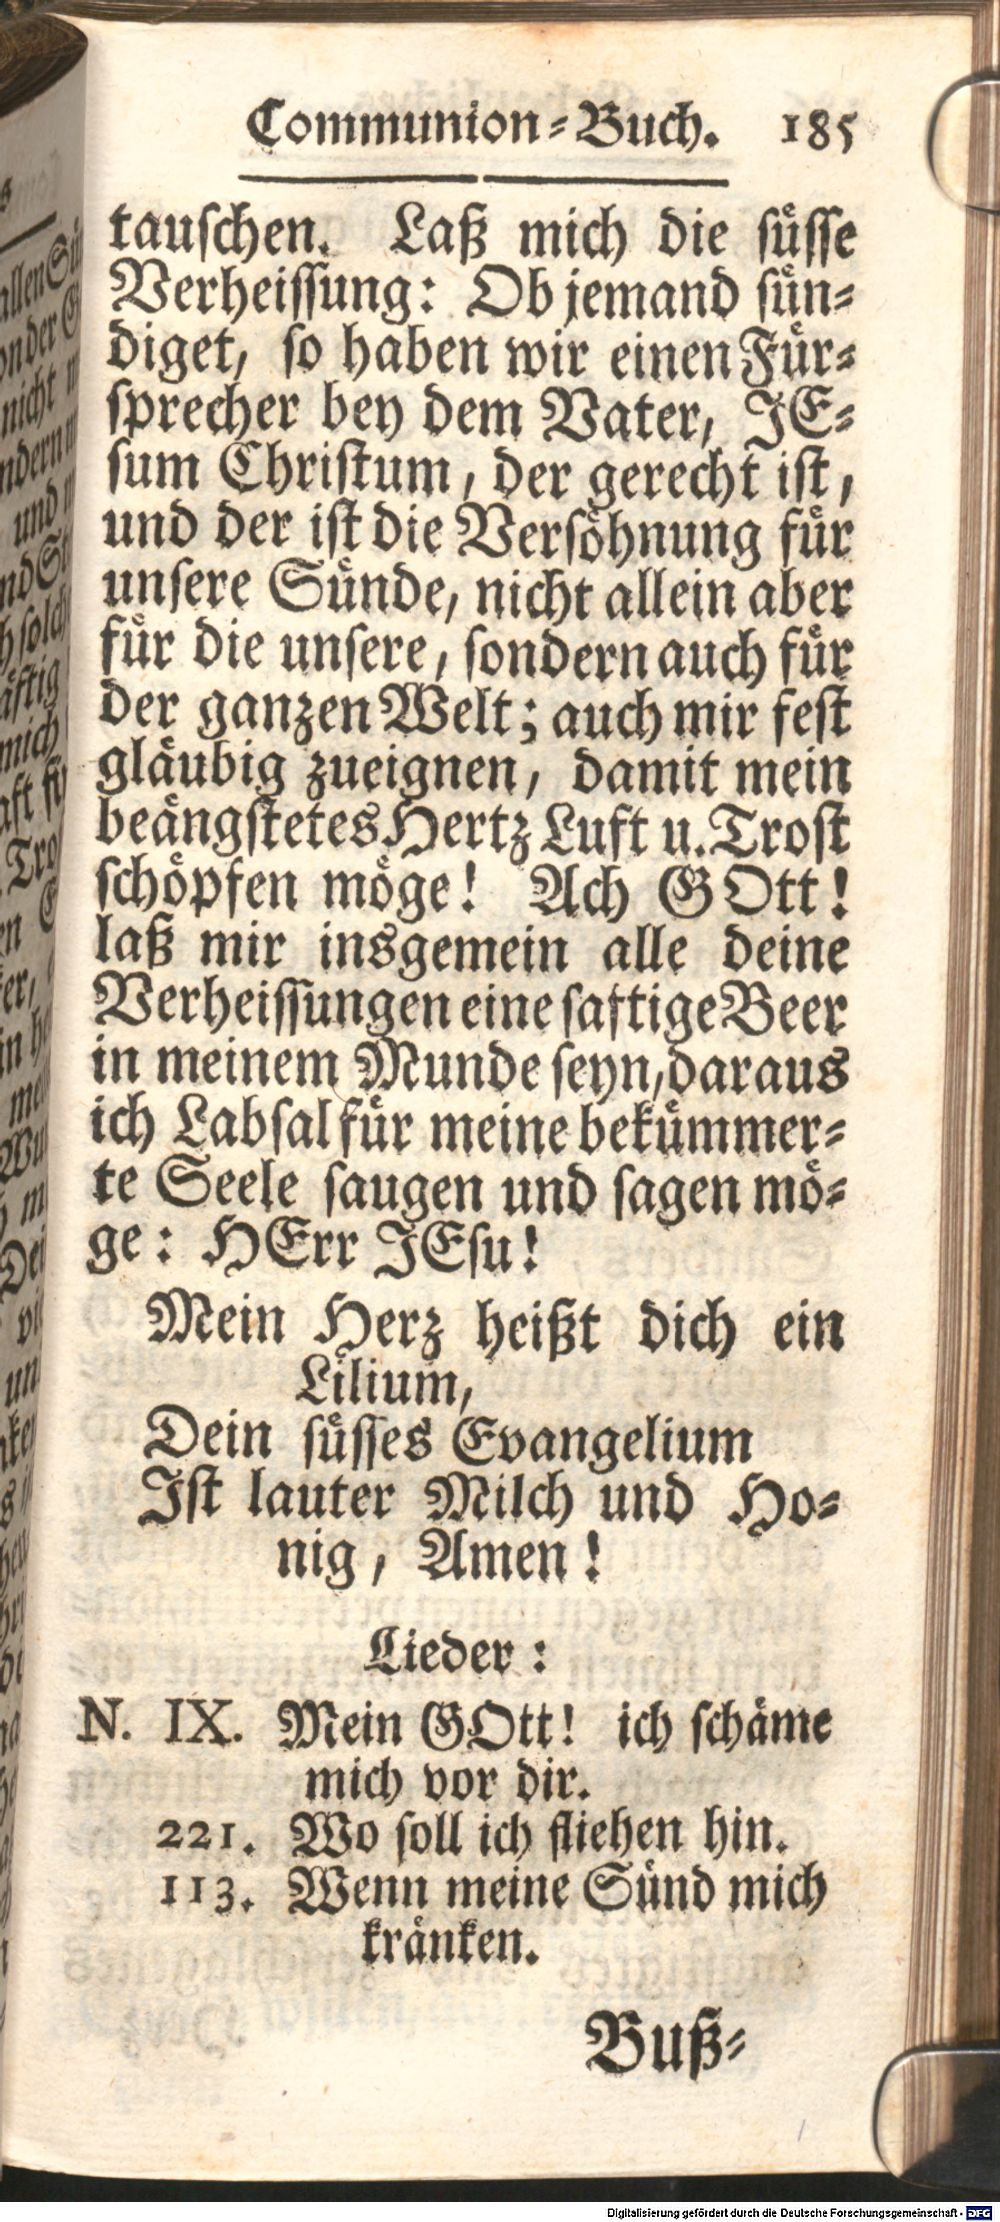 Communion-Buch. 185
tauſchen. Laß mich die ſuͤſſe
Verheiſſung: Ob jemand ſuͤn-
diget, ſo haben wir einen Fuͤr-
ſprecher bey dem Vater, JE-
ſum Chriſtum, der gerecht iſt,
und der iſt die Verſoͤhnung fuͤr
unſere Suͤnde, nicht allein aber
fuͤr die unſere, ſondern auch fuͤr
der ganzen Welt; auch mir feſt
glaͤubig zueignen, damit mein
beaͤngſtetes Hertz Luft u. Troſt
ſchoͤpfen moͤge! Ach GOtt!
laß mir insgemein alle deine
Verheiſſungen eine ſaftige Beer
in meinem Munde ſeyn, daraus
ich Labſal fuͤr meine bekuͤmmer-
te Seele ſaugen und ſagen moͤ-
ge: HErr JEſu!
Mein Herz heißt dich ein
Lilium,
Dein ſuͤſſes Evangelium
Iſt lauter Milch und Ho-
nig, Amen!
Lieder:
N. IX. Mein GOtt! ich ſchaͤme
mich vor dir.
221. Wo ſoll ich fliehen hin.
113. Wenn meine Suͤnd mich
kraͤnken.
Buß-
Digitalisierung gefördert durch die Deutsche Forschungsgemeinschaft - DFG